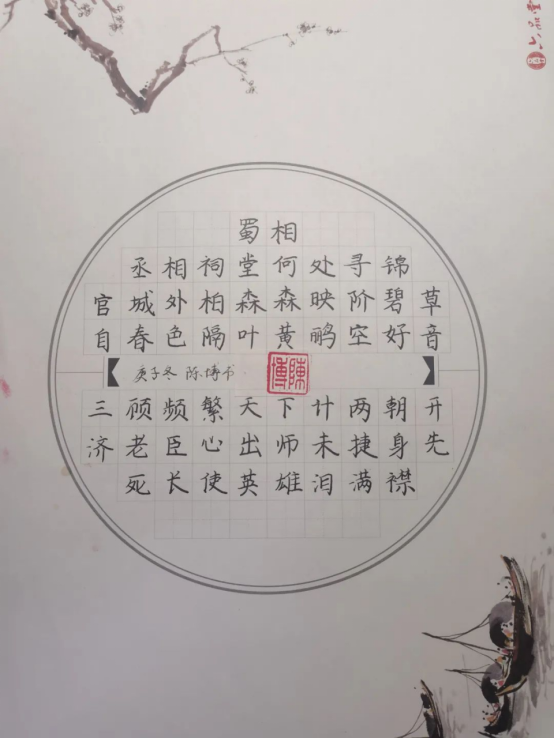 蜀相
丞相祠堂何处寻锦
官城外柏森森映阶碧草
自春色隔叶黄鹂空好音
庚子冬 陈博书
陳博
三顾频繁天下计两朝开
济老臣心出师未捷身先
死长使英雄泪满襟
六品堂